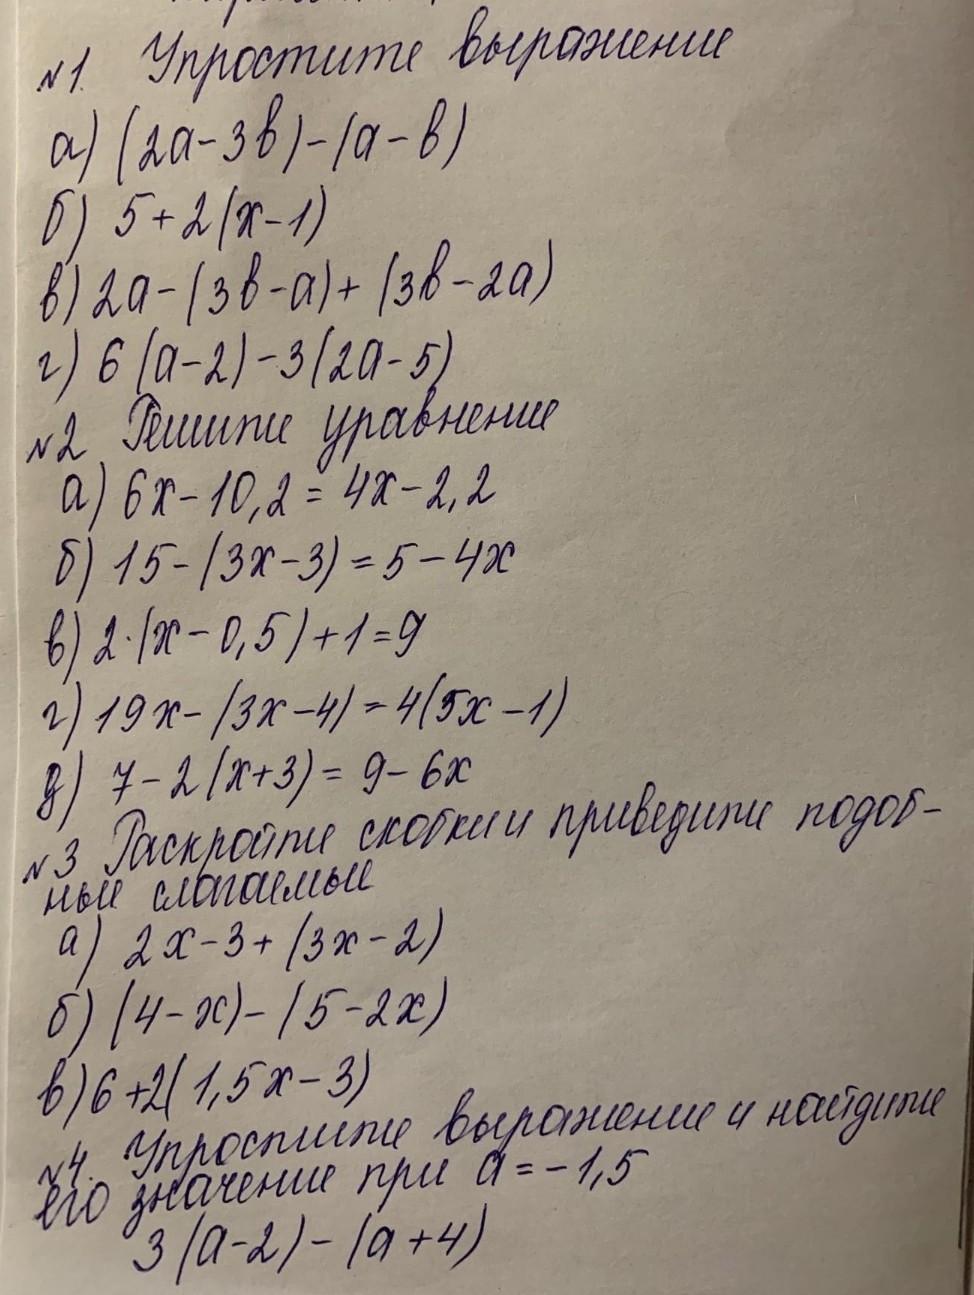 №1. Упростите выражение
а) (2а-3в)-(а-в)
б) 5+2(х-1)
в) 2а-(3в-а)+(3в-2а)
г) 6(а-2)-3(2а-5)
№2 Решите уравнение
а) 6х-10,2=4х-2,2
б) 15-(3х-3)=5-4х
в) 2·(х-0,5)+1=9
г) 19х-(3х-4)=4(5х-1)
д) 7-2(х+3)=9-6х
№3 Раскройте скобки и приведите подоб-
ные слагаемые
а) 2х-3+(3х-2)
б) (4-х)-(5-2х)
в) 6+2(1,5х-3)
№4. Упростите выражение и найдите
его значение при а=-1,5
3(а-2)-(а+4)